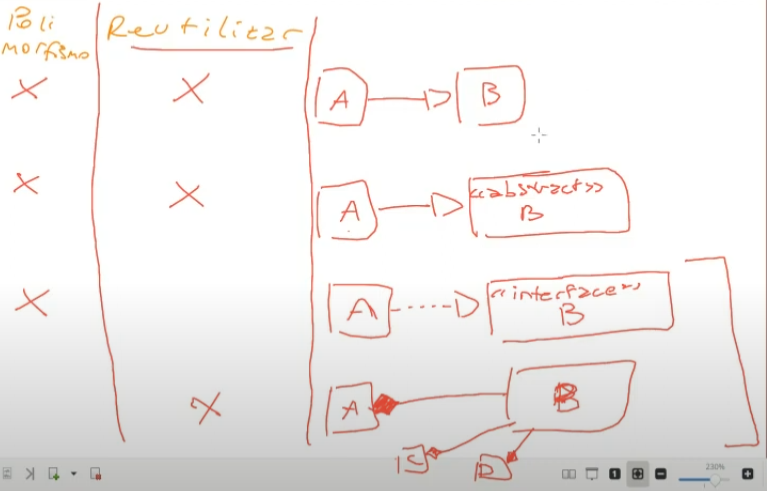 Poli
morfismo
Reutilizar
X X A B
X X A <<abstract>>
B
X A <<interface>>
B
X A B
C D
230%